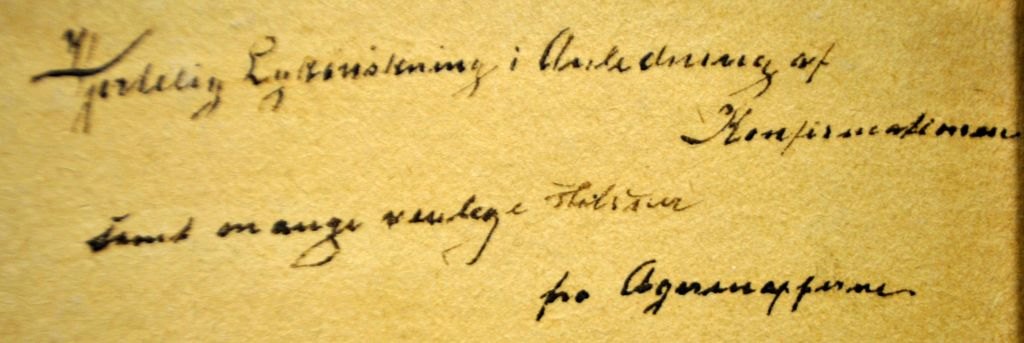 Hjertelig Lykønskning i Anledning af
Konfirmationen
samt mange venlige Hilsner
fra